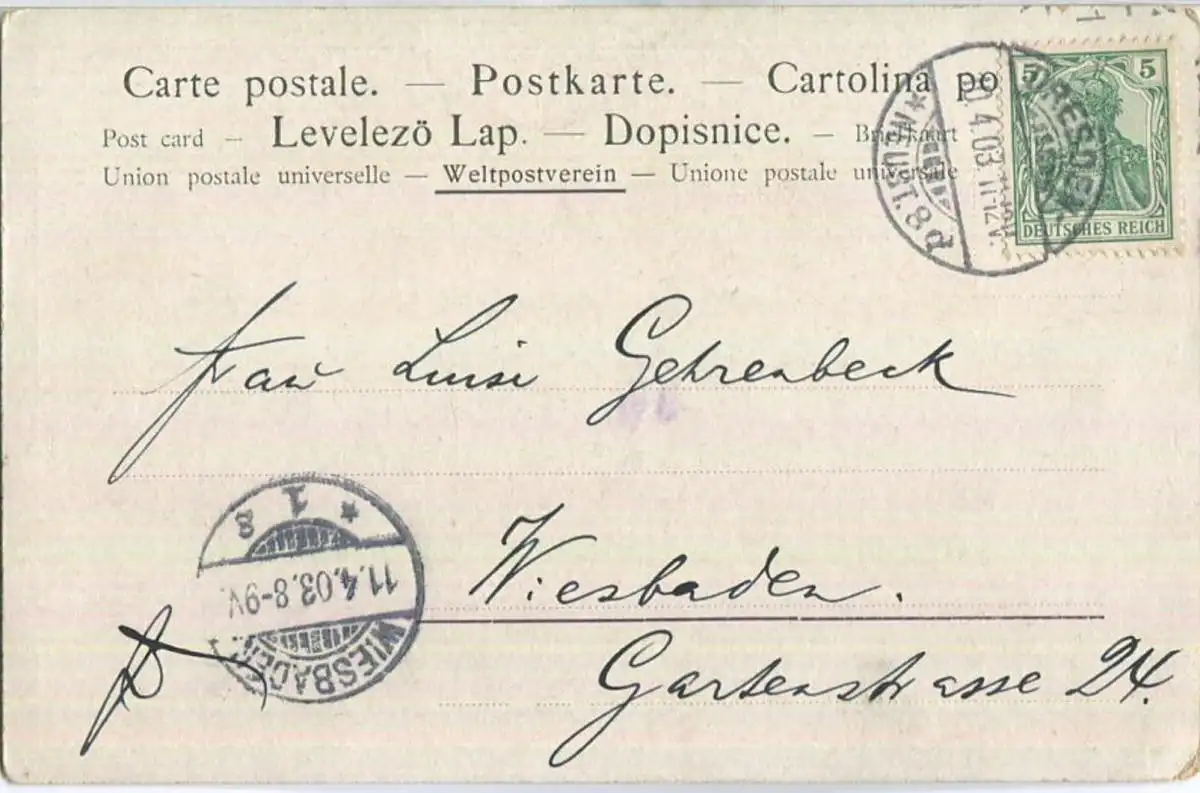 Carte postale. — Postkarte. — Cartolina po
Post card — Levelezö Lap. — Dopisnice. — Briefkaart
Union postale universelle — Weltpostverein — Unione postale universale
5 5
DEUTSCHES REICH
DRESDEN
* NEUST. 8 d
10.4.03. 11-12V.
Frau Luise Gehrenbeck
Wiesbaden.
Gartenstrasse 24.
* 1 g
11.4.03. 8-9V.
WIESBADEN